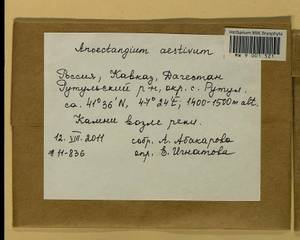 Herbarium MW, Bryophyta
MW 9 001 321
Anoectangium aestivum
Россия, Кавказ, Дагестан
Рутульский р-н, окр. с. Рутул.
ca. 41°36'N, 47°24'E, 1400-1500m alt.
Камни возле реки.
12. VIII. 2011 собр. А. Абакарова
# 11-836 опр. Е. Игнатова